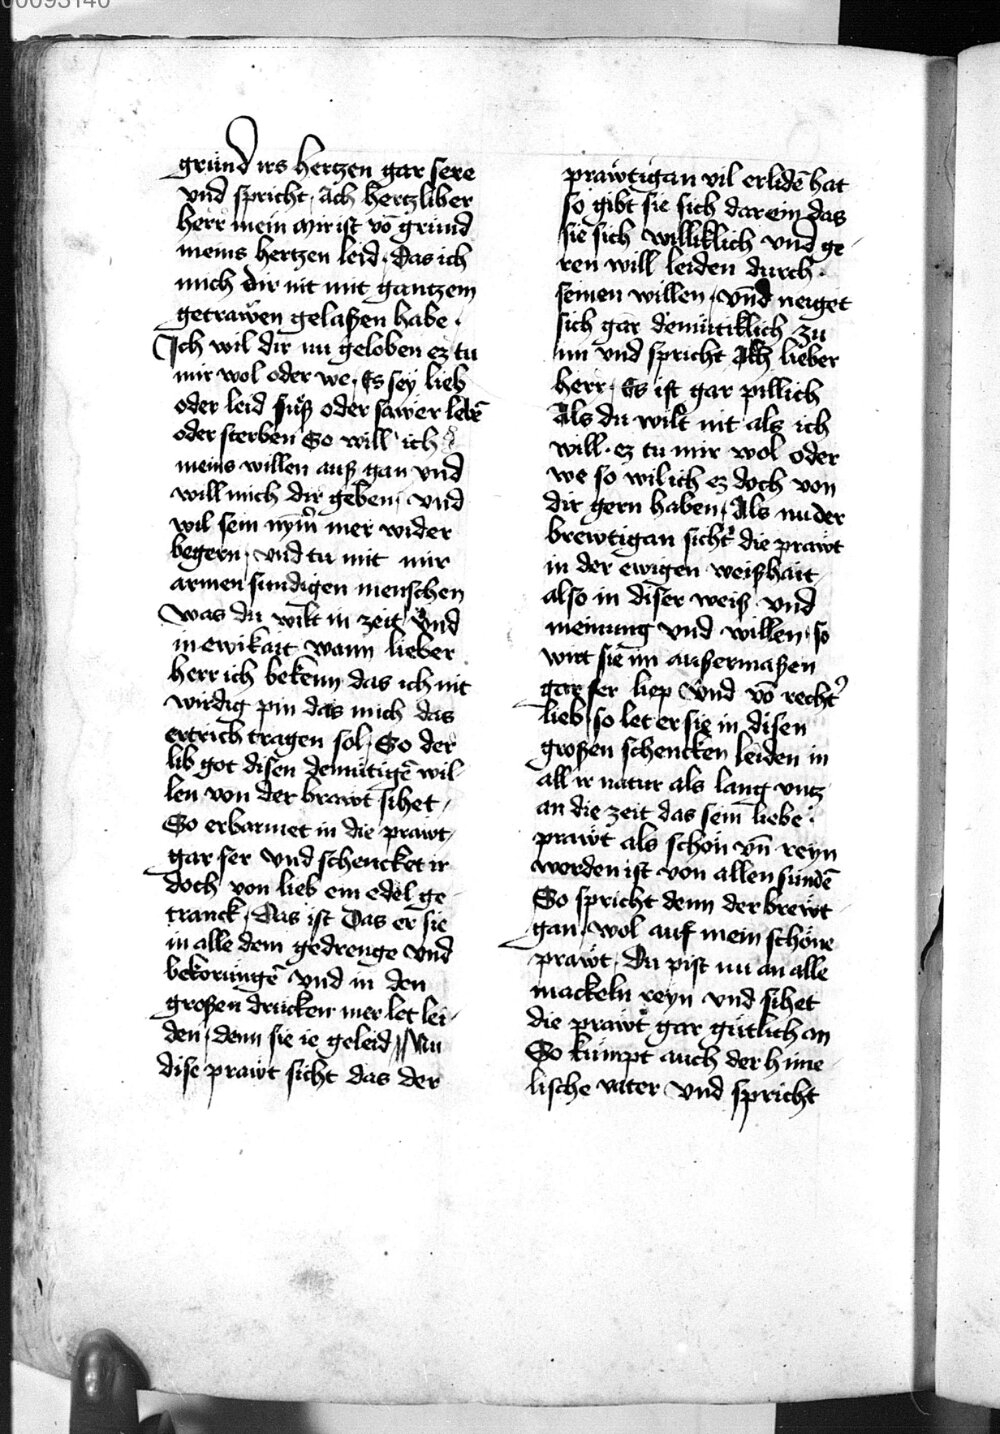 00093140
grund irs hertzen gar sere
vnd spricht, Ach hertzliber
herr mein Mir ist vō grund
meins hertzen leid. Das ich
mich dir nit mit gantzem
getrawen gelaßen habe.
Ich wil dir nu geloben ez tu
mir wol oder we, Es sey lieb
oder leid süß oder sawer lebē
oder sterben So will ich
meins willen auß gan vnd
will mich dir geben, vnd
wil sein nym̄ mer wider
begern, vnd tu mit mir
armen sundigen menschen
was du wilt in zeit Vnd
in ewikait wann lieber
herr ich bekenn das ich nit
wirdig pin das mich das
ertrich tragen sol, So der
lib got disen demütigē wil-
len von der brawt sihet,
So erbarmet in die prawt,
gar ser Vnd schencket ir
doch von lieb ein edel ge-
tranck, Das ist Das er sie
in alle dem gedrenge Vnd
bekorungē Vnd in den
großen drucken mer let lei-
den, denn sie ie geleid, Nu
dise prawt sicht das der
prawtigan vil erlidē hat
so gibt sie sich darein das
sie sich williklich vnd ge-
ren will leiden durch.
seinen willen, vnd neiget
sich gar demütiklich zu
im vnd spricht Ach lieber
herr, Es ist gar pillich
Als du wilt nit als ich
will. ez tu mir wol oder
we so wil ich ez doch von
dir gern haben, Als nu der
brewtigan sicht die prawt
in der ewigen weißhait,
also in diser weiß vnd
meinung vnd willen, so
wirt sie im außermaßen
gar ser liep Vnd vō recht'
lieb, so let er sie in disen
großen schencken leiden in
all ir natur als lang vntz
an die zeit das sein liebe.
prawt als schön vn̄ reyn
worden ist von allen sündē
So spricht denn der brewt-
gan, wol auf mein schöne
prawt, Du pist nu an alle
mackeln reyn vnd sihet
die prawt gar gütlich an
So kümpt auch der hime-
lische vater Vnd spricht